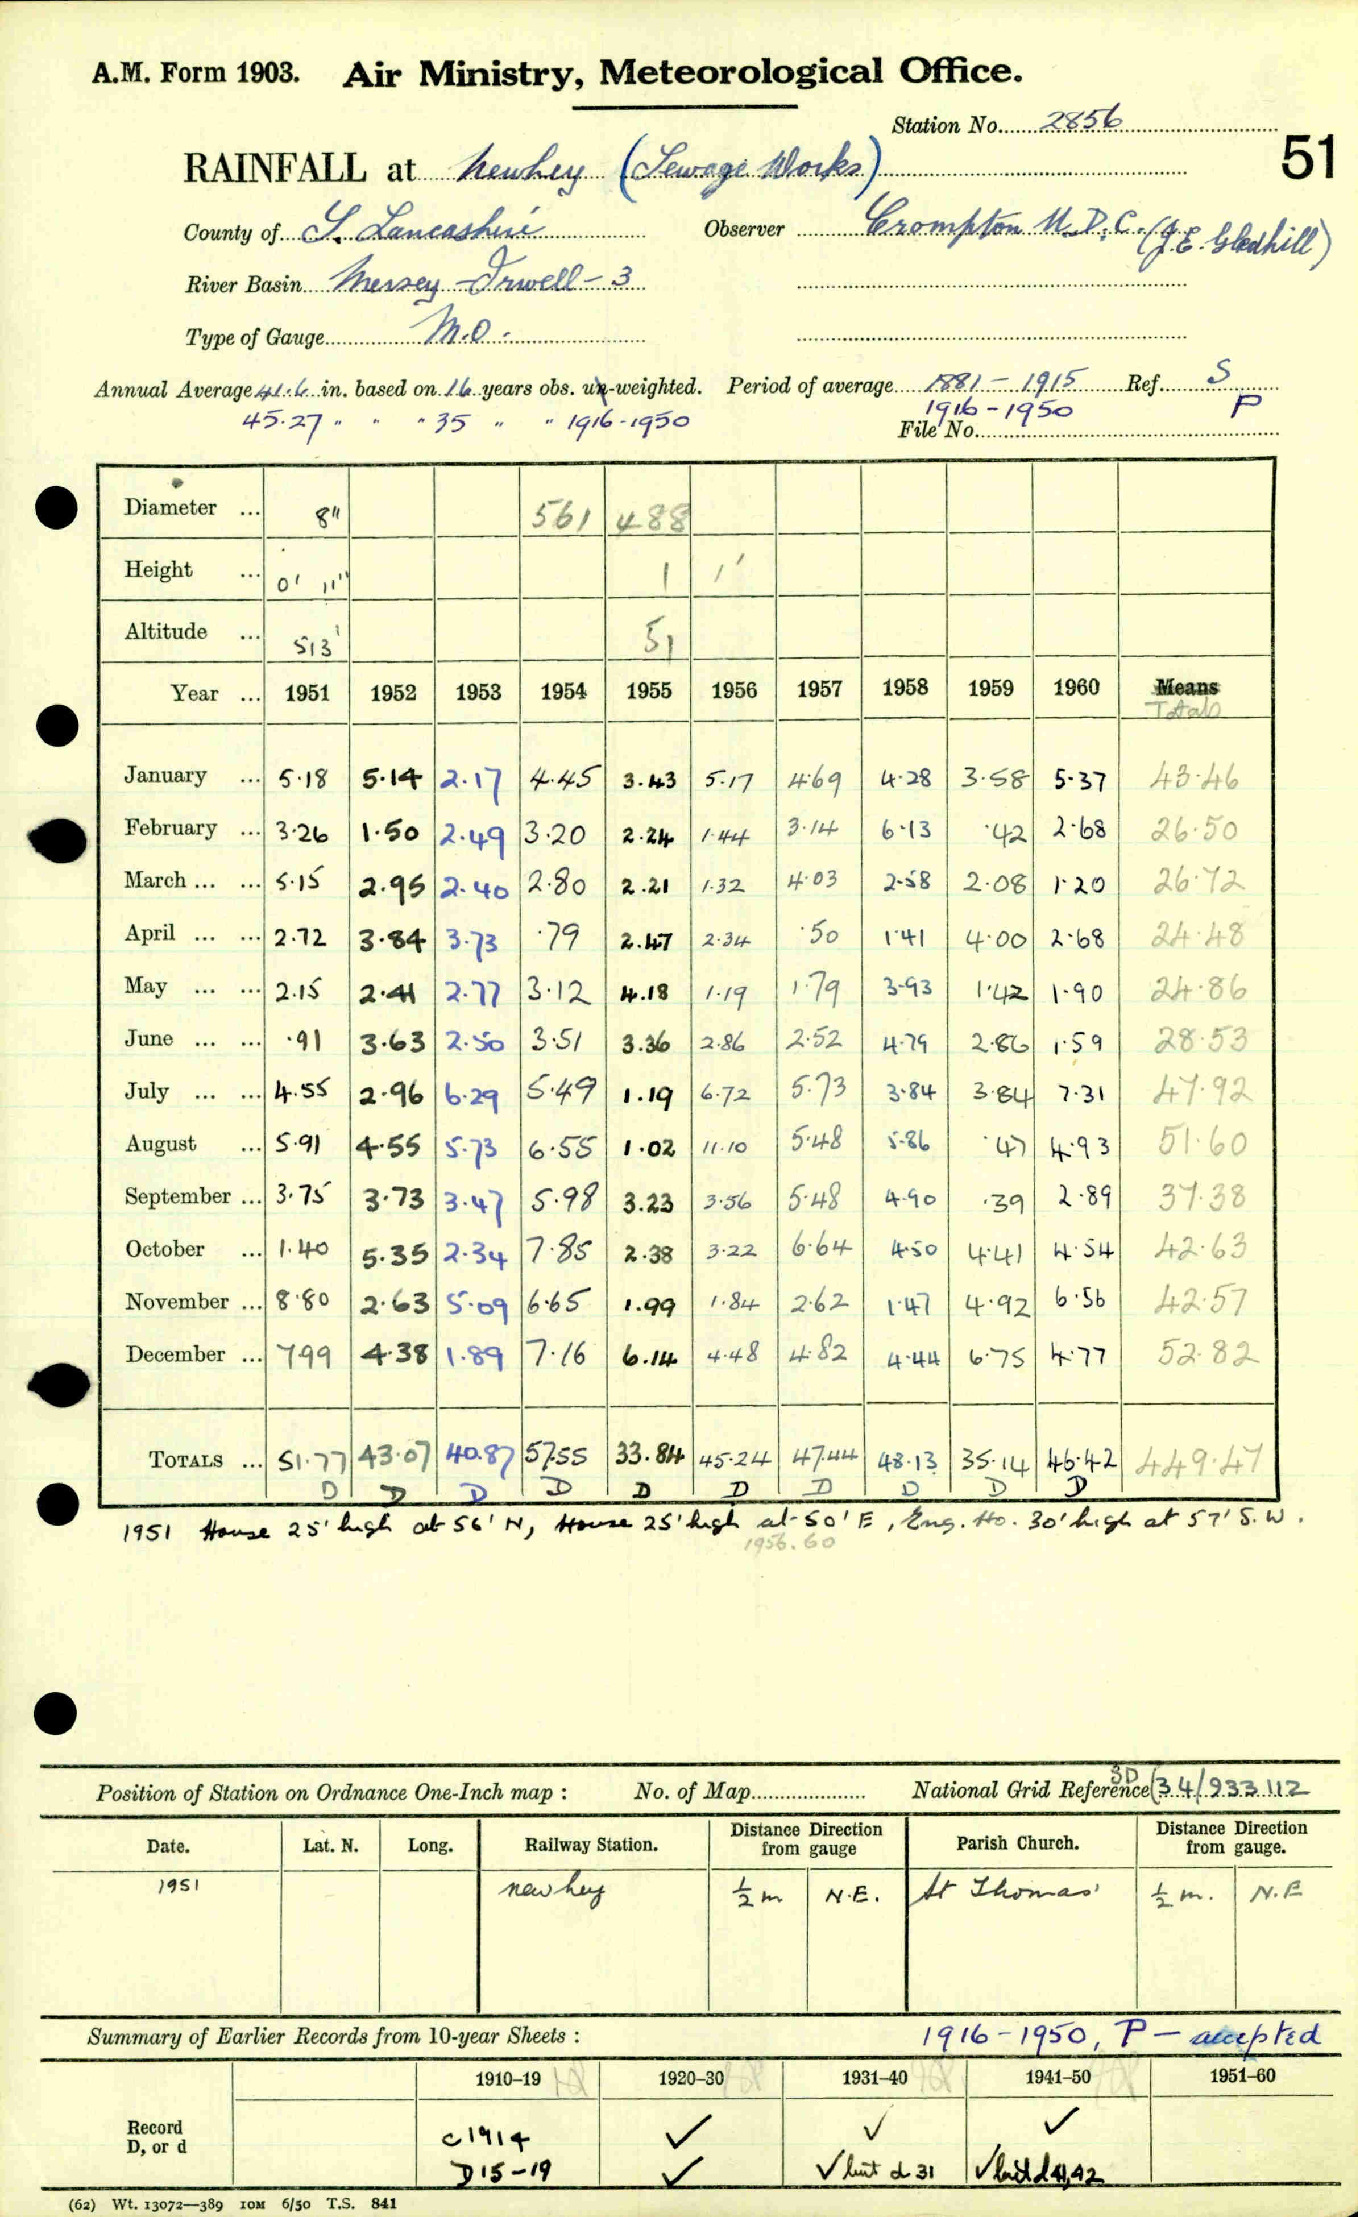 A.M. Form 1903. Air Ministry, Meteorological Office.
Station No. 2856
51
RAINFALL at Newhey (Sewage Works)
County of S. Lancashire Observer Crompton U.D.C. (J.E. Gledhill)
River Basin Mersey - Irwell - 3
Type of Gauge M.O.
Annual Average 41.6 in. based on 16 years obs. un-weighted. Period of average 1881 - 1915 Ref. S
45.27 " " " 35 " " 1916-1950 1916 - 1950 P
File No.
Diameter ... 8" 561 488
Height ... 0' 11" 1 1'
Altitude ... 513' 51
Year ... 1951 1952 1953 1954 1955 1956 1957 1958 1959 1960 Means
Totals
January ... 5.18 5.14 2.17 4.45 3.43 5.17 4.69 4.28 3.58 5.37 43.46
February ... 3.26 1.50 2.49 3.20 2.24 1.44 3.14 6.13 .42 2.68 26.50
March ... ... 5.15 2.95 2.40 2.80 2.21 1.32 4.03 2.58 2.08 1.20 26.72
April ... ... 2.72 3.84 3.73 .79 2.47 2.34 .50 1.41 4.00 2.68 24.48
May ... ... 2.15 2.41 2.77 3.12 4.18 1.19 1.79 3.93 1.42 1.90 24.86
June ... ... .91 3.63 2.50 3.51 3.36 2.86 2.52 4.79 2.86 1.59 28.53
July ... ... 4.55 2.96 6.29 5.49 1.19 6.72 5.73 3.84 3.84 7.31 47.92
August ... 5.91 4.55 5.73 6.55 1.02 11.10 5.48 5.86 .47 4.93 51.60
September ... 3.75 3.73 3.47 5.98 3.23 3.56 5.48 4.90 .39 2.89 37.38
October ... 1.40 5.35 2.34 7.85 2.38 3.22 6.64 4.50 4.41 4.54 42.63
November ... 8.80 2.63 5.09 6.65 1.99 1.84 2.62 1.47 4.92 6.56 42.57
December ... 7.99 4.38 1.89 7.16 6.14 4.48 4.82 4.44 6.75 4.77 52.82
TOTALS ... 51.77 43.07 40.87 57.55 33.84 45.24 47.44 48.13 35.14 46.42 449.47
D D D D D D D D D D
1951 House 25' high at 56' N, House 25' high at 50' E, Eng. Ho. 30' high at 57' S.W.
1956.60
Position of Station on Ordnance One-Inch map : No. of Map National Grid Reference 3D (34/933112
Date. Lat. N. Long. Railway Station. Distance Direction from gauge Parish Church. Distance Direction from gauge.
1951 Newhey 1/2 m N.E. St Thomas' 1/2 m. N.E
Summary of Earlier Records from 10-year Sheets : 1916 - 1950, P - accepted
1910–19 1920–30 1931–40 1941–50 1951–60
Record D, or d
c1914 ✓ ✓ ✓
D 15-19 ✓ ✓ but d 31 ✓ but d 41,42
(62) Wt. 13072—389 10M 6/50 T.S. 841